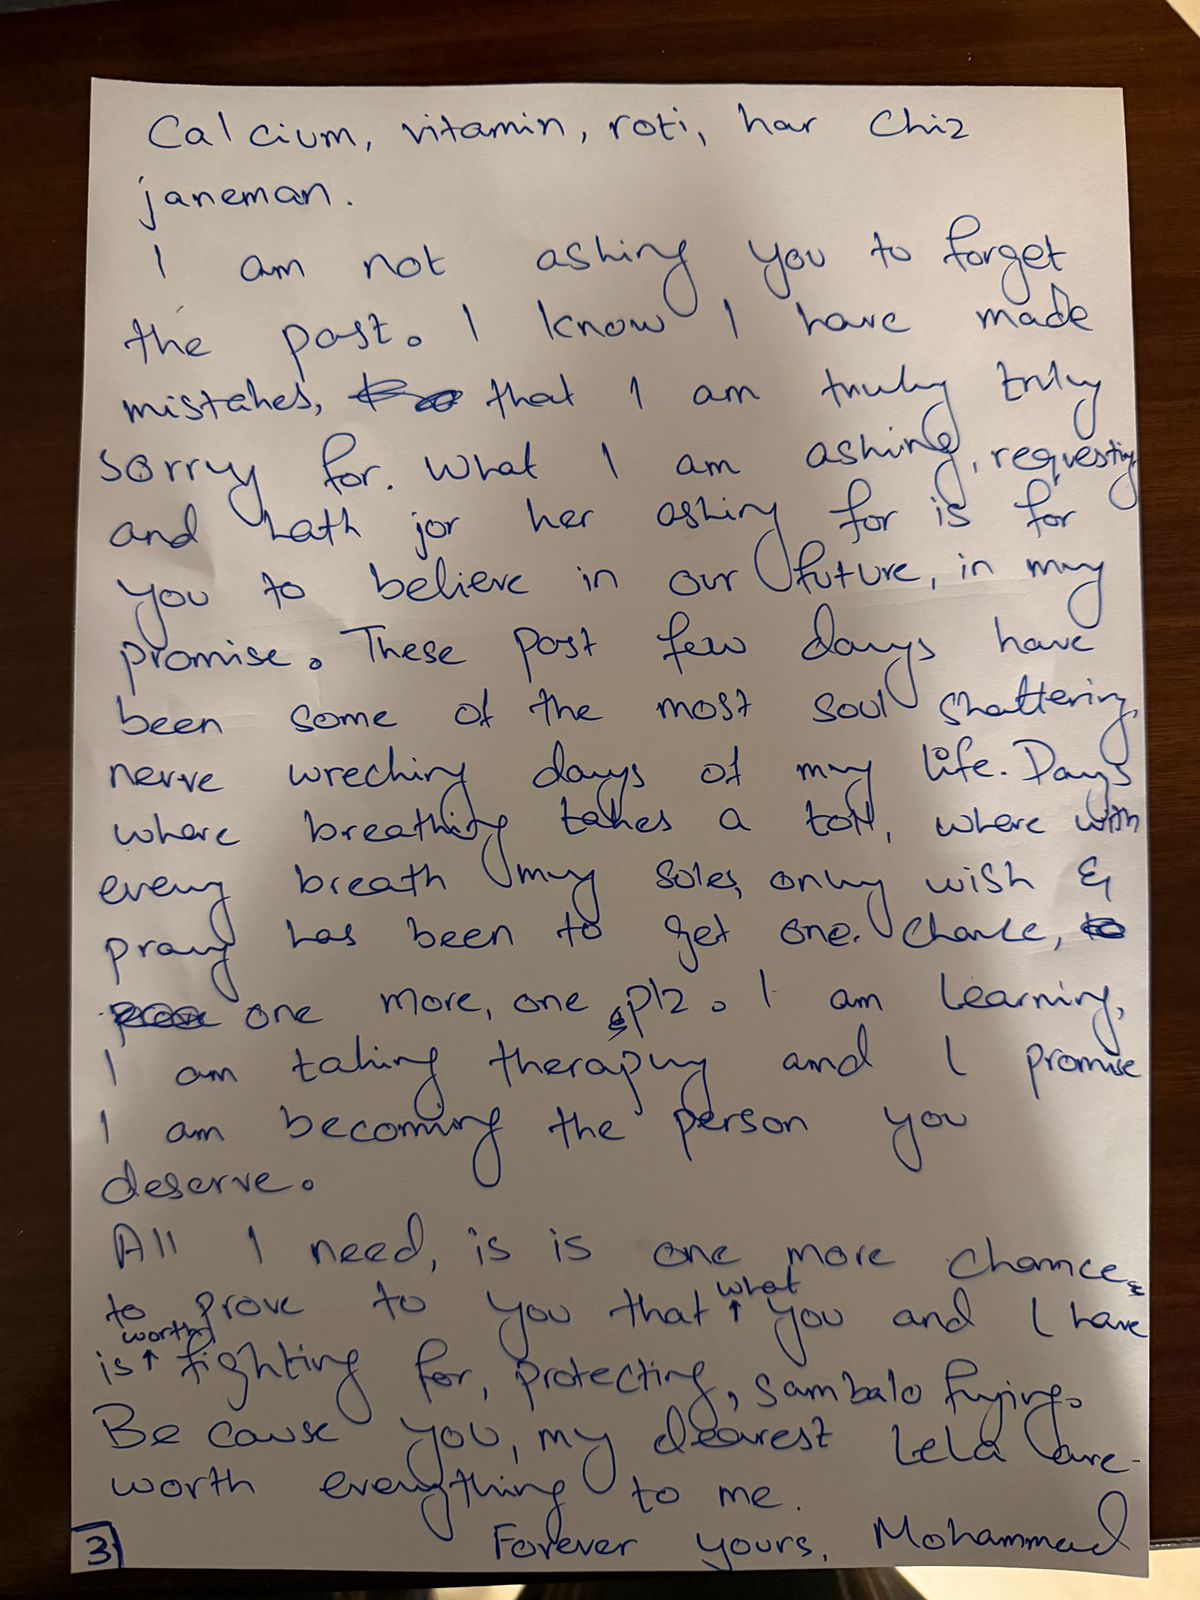 Calcium, vitamin, roti, har chiz
janeman.
I am not asking you to forget
the past. I know I have made
mistakes, that I am truly truly
sorry for. What I am asking, requesting
and hath jor her asking for is for
you to believe in our future, in my
promise. These past few days have
been some of the most soul shattering,
nerve wreching days of my life. Days
where breathing takes a toll, where with
every breath my soles only wish &
pray has been to get one. chance,
one more, one plz. I am learning,
I am taking therapy and I promise
I am becoming the person you
deserve.
All I need, is is one more chance
to prove to you that what you and I have
is worth fighting for, protecting, sambalo fying.
Because you, my dearest Lela are
worth everything to me.
Forever yours, Mohammad
3